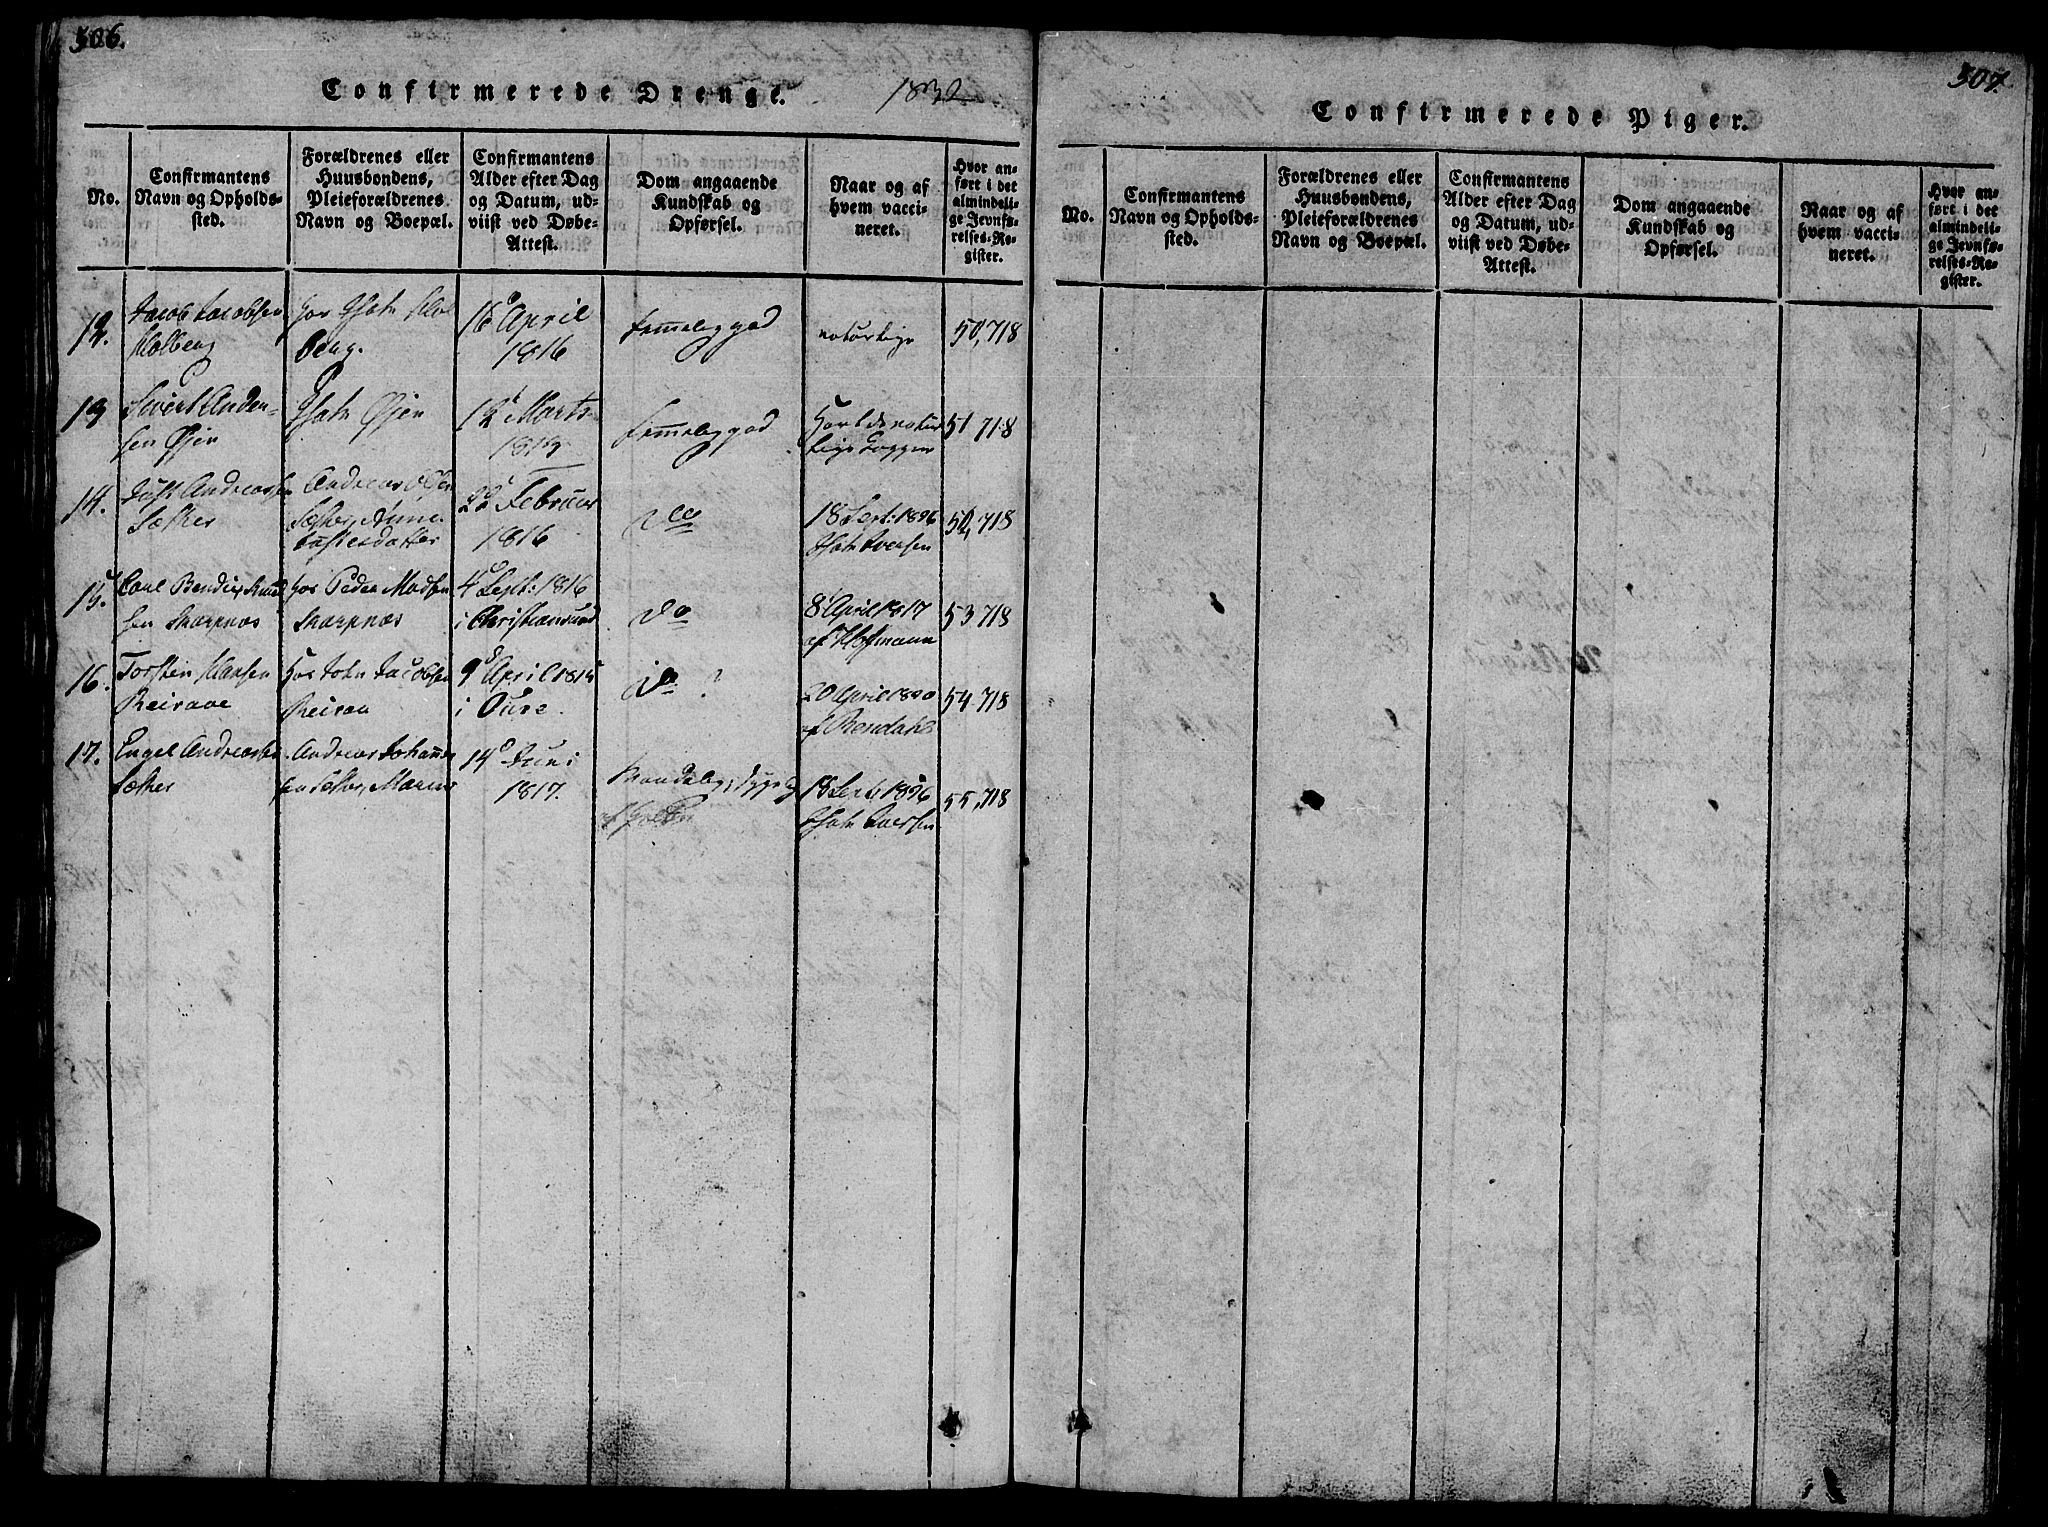 306.
Confirmerede Drenge. 1832
No.
Confirmantens
Navn og Opholds-
sted.
Forældrenes eller
Huusbondens,
Pleieforældrenes
Navn og Boepæl.
Confirmantens
Alder efter Dag
og Datum, ud-
viist ved Døbe-
Attest.
Dom angaaende
Kundskab og
Opførsel.
Naar og af
hvem vacci-
neret.
Hvor an-
ført i det
almindeli-
ge Jevnfø-
relses-Re-
gister.
12.
Jacob Jacobsen
Holberg
berg.
16 April
1816
temmelig god
naturlige
50,718
13
Sivert Ander-
sen Øjen
Øjen
12 Marts
temmelig god
Havt de natur
lige Kopper
51 718
14.
Just Andreassen
Sæther
Andreas Ols
Sæther, Anne
Justesdatter
22 Februar
1816
do
18 Sept: 1826
Iversen
52,718
15.
Carl Bendix Knud
sen Skarpnæs
hos Peder Madsen
Skarpnæs
4 Sept: 1816
i Christiansund
do
8 April 1817
af Hoffmann
53 718
16.
Torsten Hansen
Reiraae
Hos John Jacobsen
Reiraae
9 April 1815
i Oure
do ?
20 April 1820
af Rendahl
54 718
17.
Engel Andreassen
Sæther
Andreas Johanne
sen Sæther, Maren
14 Juni
1817.
18 Sept: 1826
Iversen
55,718
307.
Confirmerede Piger.
No.
Confirmantens
Navn og Opholds-
sted.
Forældrenes eller
Huusbondens,
Pleieforældrenes
Navn og Boepæl.
Confirmantens
Alder efter Dag
og Datum, ud-
viist ved Døbe-
Attest.
Dom angaaende
Kundskab og
Opførsel.
Naar og af
hvem vacci-
neret.
Hvor an-
ført i det
almindeli-
ge Jevnfø-
relses-Re-
gister.